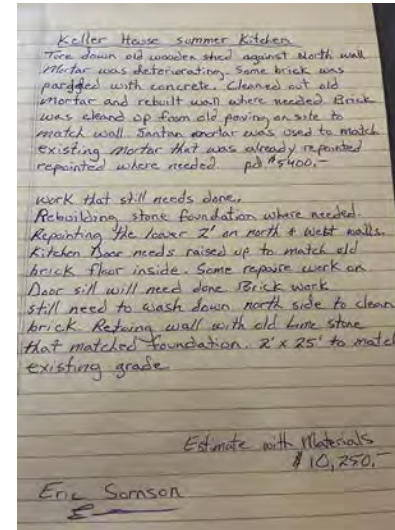 Keller House Summer Kitchen
Tore down old wooden shed against North wall
Mortar was deteriorating. Some brick was
pardged with concrete. Cleaned out old
mortar and rebuilt wall where needed Brick
was cleand up from old paving on site to
match wall. Santan mortar was used to match
existing mortar that was already repointed
repointed where needed. pd $5400.-
work that still needs done.
Rebuilding stone foundation where needed.
Repointing the lower 2' on north & west walls.
Kitchen Door needs raised up to match old
brick floor inside. Some repaire work on
Door sill will need done Brick work
still need to wash down north side to clean
brick. Retaing wall with old lime stone
that matched foundation. 2' x 25' to match
existing grade.
Estimate with Materials
$10,250.-
Eric Samson